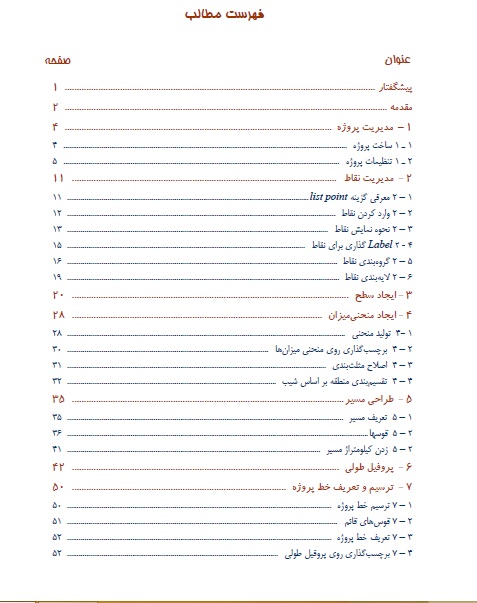 فهرست مطالب
عنوان صفحه
پیشگفتار ۱
مقدمه ۲
۱ – مدیریت پروژه ۴
۱ ـ ۱ ساخت پروژه ۴
۲ ـ ۱ تنظیمات پروژه ۵
۲ - مدیریت نقاط ۱۱
۱ – ۲ معرفی گزینه list point ۱۱
۲ – ۲ وارد کردن نقاط ۱۲
۳ – ۲ نحوه نمایش نقاط ۱۳
۴ - ۲ Label گذاری برای نقاط ۱۵
۵ – ۲ گروه‌بندی نقاط ۱۶
۶ – ۲ لایه‌بندی نقاط ۱۹
۳ - ایجاد سطح ۲۰
۴ - ایجاد منحنی‌میزان ۲۸
۱ -۴ تولید منحنی ۲۸
۲ – ۴ برچسب‌گذاری روی منحنی میزان‌ها ۳۰
۳ – ۴ اصلاح مثلث‌بندی ۳۱
۴ – ۴ تقسیم‌بندی منطقه بر اساس شیب ۳۲
۵ - طراحی مسیر ۳۵
۱ – ۵ تعریف مسیر ۳۵
۲ – ۵ قوسها ۳۶
۲ – ۵ زدن کیلومتراژ مسیر ۴۱
۶ - پروفیل طولی ۴۲
۷ - ترسیم و تعریف خط پروژه ۵۰
۱ – ۷ ترسیم خط پروژه ۵۰
۲ – ۷ قوس‌های قائم ۵۱
۳ – ۷ تعریف خط پروژه ۵۲
۴ – ۷ برچسب‌گذاری روی پروفیل طولی ۵۲